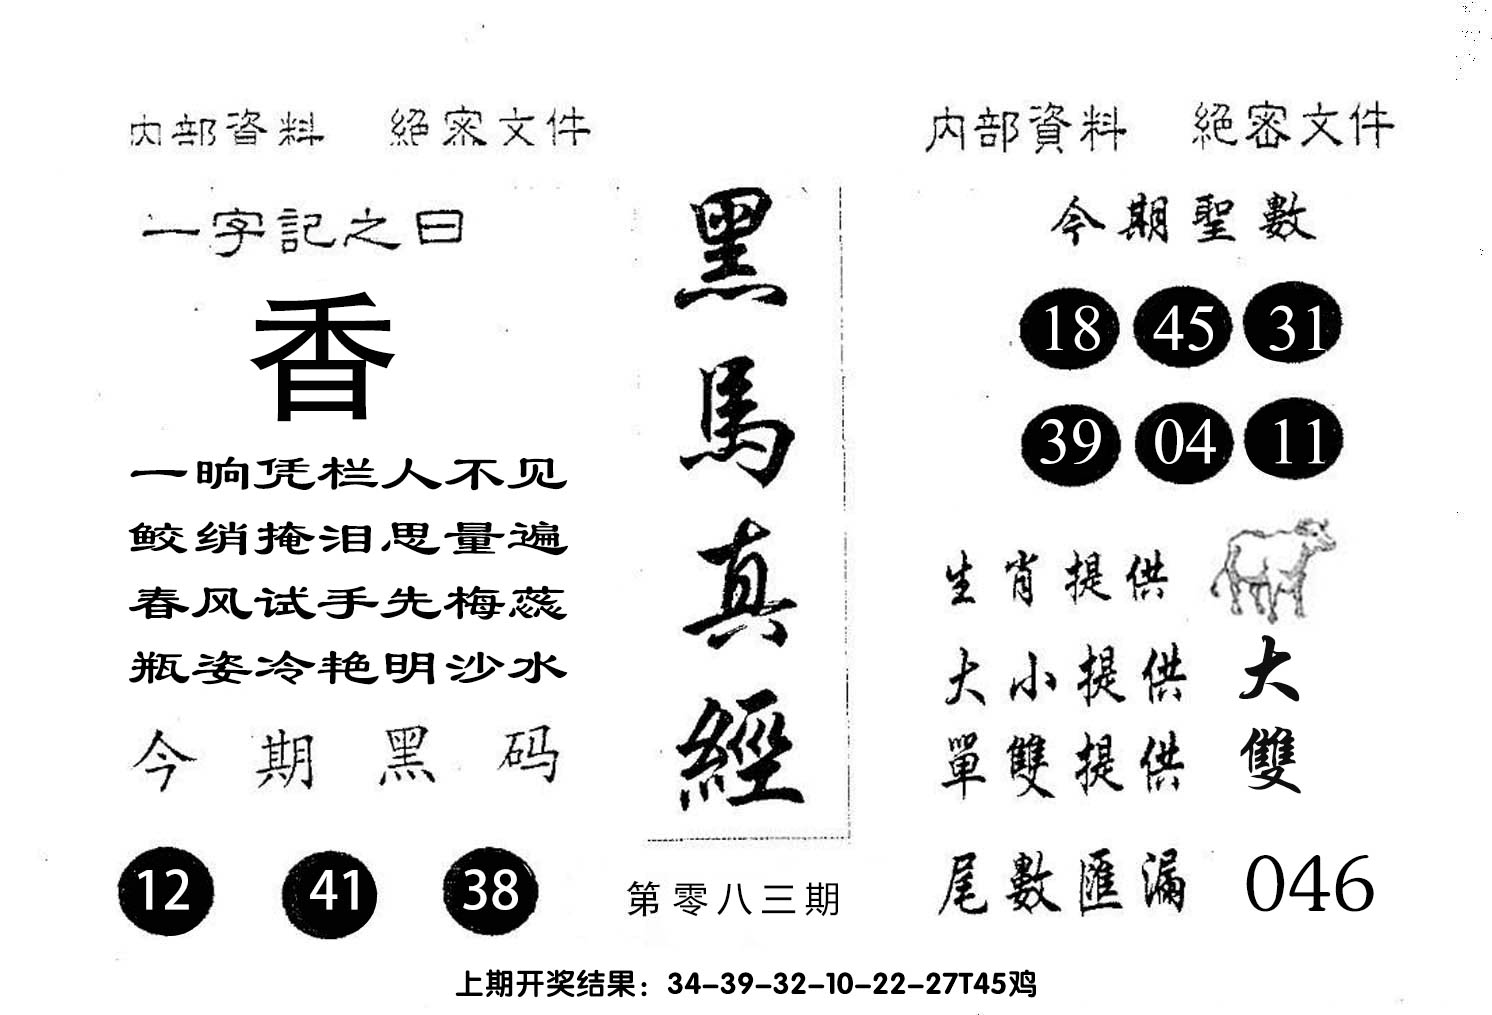 内部資料 絕密文件
一字記之曰
香
一晌凭栏人不见
鲛绡掩泪思量遍
春风试手先梅蕊
瓶姿冷艳明沙水
今期黑码
12 41 38
黑馬真經
第零八三期
内部資料 絕密文件
今期聖數
18 45 31
39 04 11
生肖提供
大小提供 大
單雙提供 雙
尾數匯漏 046
上期开奖结果：34-39-32-10-22-27T45鸡